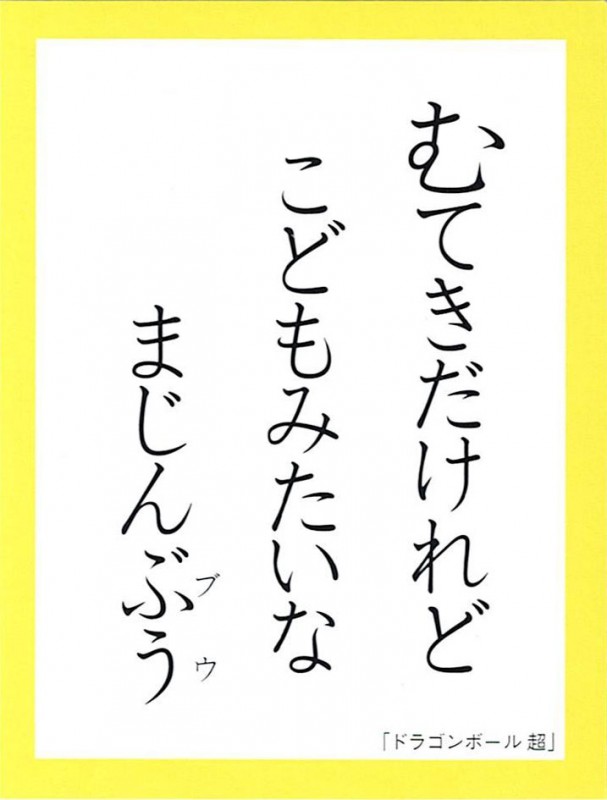 むてきだけれど
こどもみたいな
まじんぶう
ブウ
「ドラゴンボール 超」